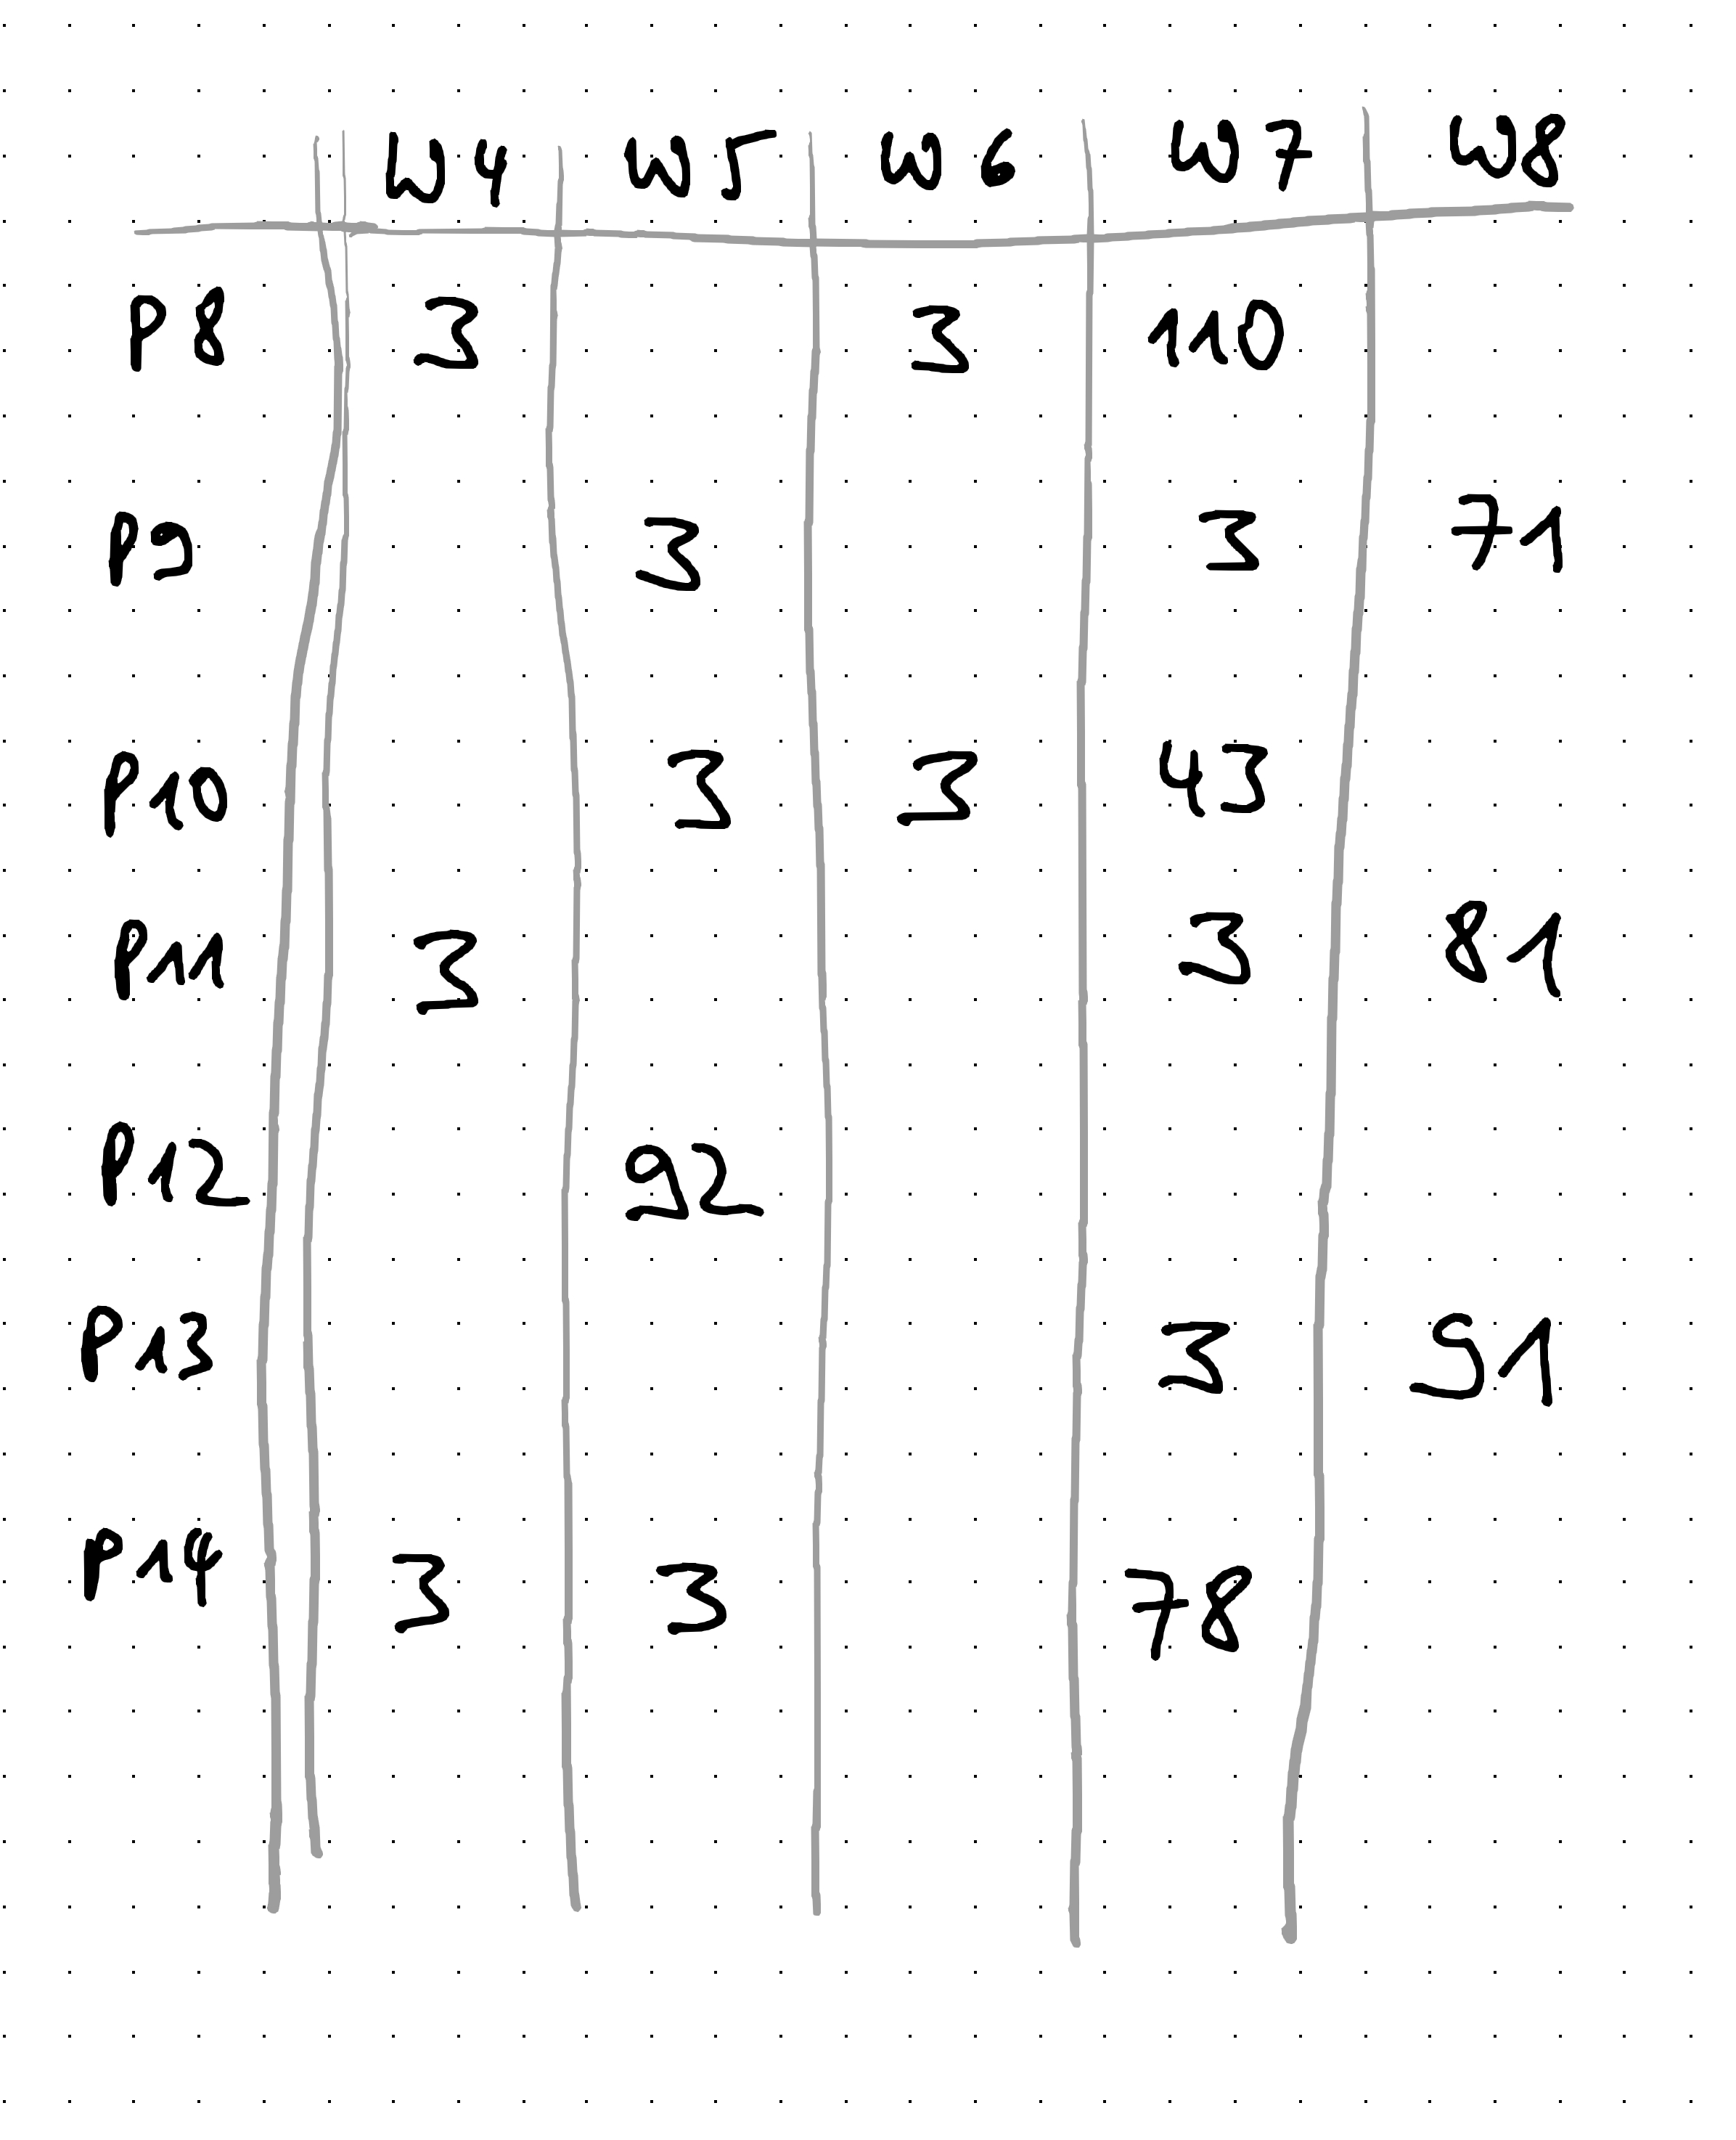 W4 W5 W6 W7 W8
P8 3 3 110
P9 3 3 71
P10 3 3 43
P11 3 3 81
P12 92
P13 3 91
P14 3 3 78